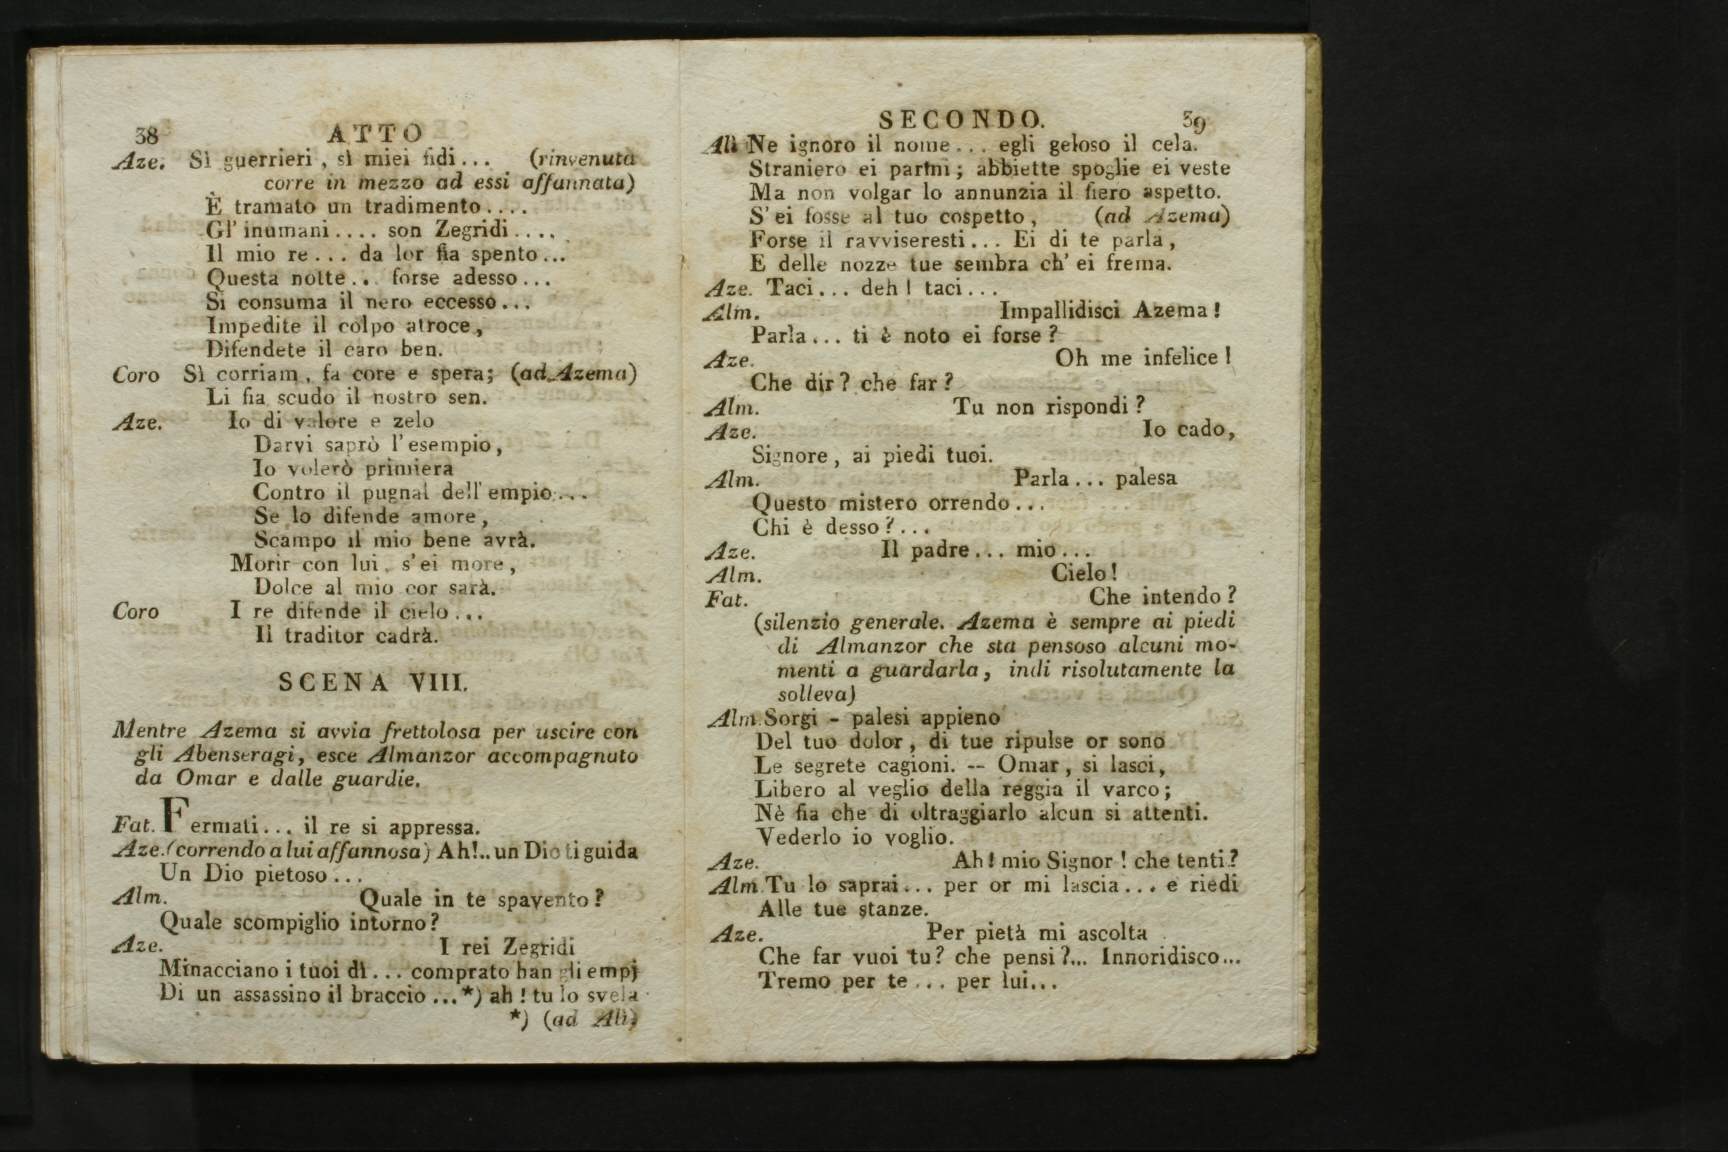 38 ATTO
Aze. Sì guerrieri, sì miei fidi... (rinvenuta
corre in mezzo ad essi affannata)
È tramato un tradimento....
Gl'inumani.... son Zegridi....
Il mio re... da lor fia spento...
Questa notte... forse adesso...
Si consuma il nero eccesso...
Impedite il colpo atroce,
Difendete il caro ben.
Coro Sì corriam, fa core e spera; (ad Azema)
Li fia scudo il nostro sen.
Aze. Io di valore e zelo
Darvi saprò l'esempio,
Io volerò primiera
Contro il pugnal dell'empio...
Se lo difende amore,
Scampo il mio bene avrà.
Morir con lui, s'ei more,
Dolce al mio cor sarà.
Coro I re difende il cielo...
Il traditor cadrà.
SCENA VIII.
Mentre Azema si avvia frettolosa per uscire con
gli Abenseragi, esce Almanzor accompagnato
da Omar e dalle guardie.
Fat. Fermati... il re si appressa.
Aze. (correndo a lui affannosa) Ah!.. un Dio ti guida
Un Dio pietoso...
Alm. Quale in te spavento?
Quale scompiglio intorno?
Aze. I rei Zegridi
Minacciano i tuoi dì... comprato han gli empj
Di un assassino il braccio...*) ah! tu lo svela
*) (ad Alì)
SECONDO. 39
Alì Ne ignoro il nome... egli geloso il cela.
Straniero ei parmi; abbiette spoglie ei veste
Ma non volgar lo annunzia il fiero aspetto.
S'ei fosse al tuo cospetto, (ad Azema)
Forse il ravviseresti... Ei di te parla,
E delle nozze tue sembra ch'ei frema.
Aze. Taci... deh! taci...
Alm. Impallidisci Azema!
Parla... ti è noto ei forse?
Aze. Oh me infelice!
Che dir? che far?
Alm. Tu non rispondi?
Aze. Io cado,
Signore, ai piedi tuoi.
Alm. Parla... palesa
Questo mistero orrendo...
Chi è desso?...
Aze. Il padre... mio...
Alm. Cielo!
Fat. Che intendo?
(silenzio generale. Azema è sempre ai piedi
di Almanzor che sta pensoso alcuni mo-
menti a guardarla, indi risolutamente la
solleva)
Alm. Sorgi - palesi appieno
Del tuo dolor, di tue ripulse or sono
Le segrete cagioni. -- Omar, si lasci,
Libero al veglio della reggia il varco;
Nè fia che di oltraggiarlo alcun si attenti.
Vederlo io voglio.
Aze. Ah! mio Signor! che tenti?
Alm. Tu lo saprai... per or mi lascia... e riedi
Alle tue stanze.
Aze. Per pietà mi ascolta
Che far vuoi tu? che pensi?... Innoridisco...
Tremo per te... per lui...